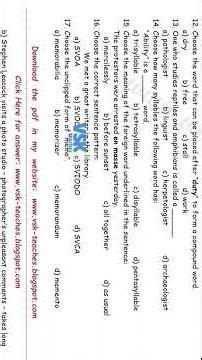 12. Choose the word that can be placed after 'duty' to form a compound word.
a) pay b) free c) stall d) work
13. One who studies reptiles and amphibians is called a
a) pathologist b) linguist c) herpetologist d) archaeologist
14. Choose how many syllables the following word has:
"Ability" is a word.
a) trisyllabic b) tetrasyllabic c) disyllabic d) pentasyllabic
15. Choose the meaning of the foreign word underlined in the sentence:
The protesters were arrested en masse yesterday.
a) mercilessly b) before sunset c) all together d) as usual
16. Choose the correct sentence pattern
"We met a great writer in the library.
a) SVOA b) SVOC c) SVIODO d) SVCA
17. Choose the unclipped form of "memo"
a) memorable b) memorizer c) memorandum d) memento
Download the pdf in my website: www.vsk-teaches.blogspot.com
Click Here for answer: www.vsk-teaches.blogspot.com
VSK
b) Stephen Leacock visits a photo studio - photographer's unpleasant comments - takes long